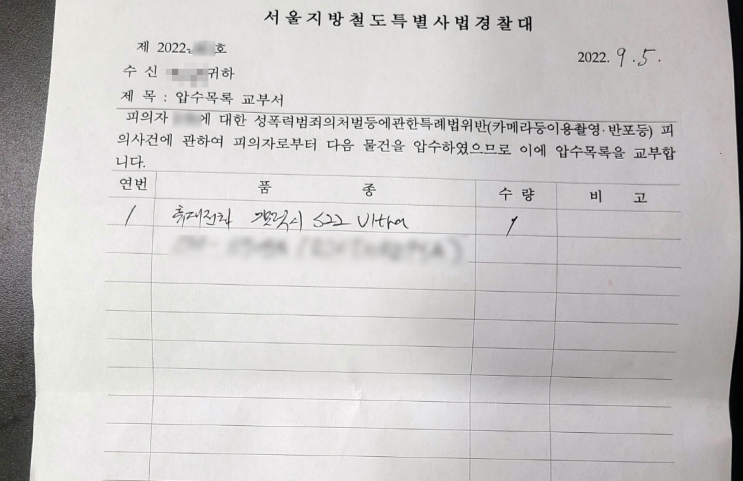 서울지방철도특별사법경찰대
제 2022- 호
2022. 9. 5.
수 신 귀하
제 목 : 압수목록 교부서
피의자 에 대한 성폭력범죄의처벌등에관한특례법위반(카메라등이용촬영·반포등) 피
의사건에 관하여 피의자로부터 다음 물건을 압수하였으므로 이에 압수목록을 교부합
니다.
연번 품 종 수 량 비 고
1 휴대전화 갤럭시 S22 Ultra 1